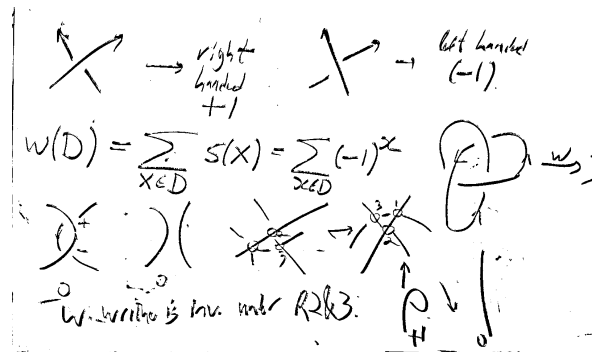 → right handed +1
→ left handed (-1)
w(D) = Σ_{X∈D} S(X) = Σ_{x∈D} (-1)^x
w
+
-
0
0
1 2 3
3 1 2
w. writhe is inv. under R2&3.
+1
0